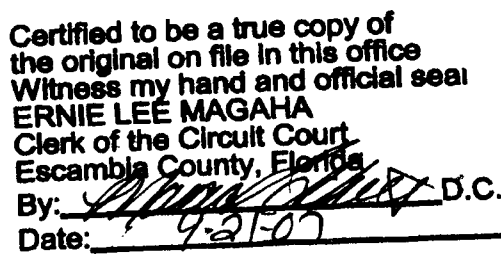 Certified to be a true copy of
the original on file in this office
Witness my hand and official seal
ERNIE LEE MAGAHA
Clerk of the Circuit Court
Escambia County, Florida
By: D.C.
Date: 9-21-07